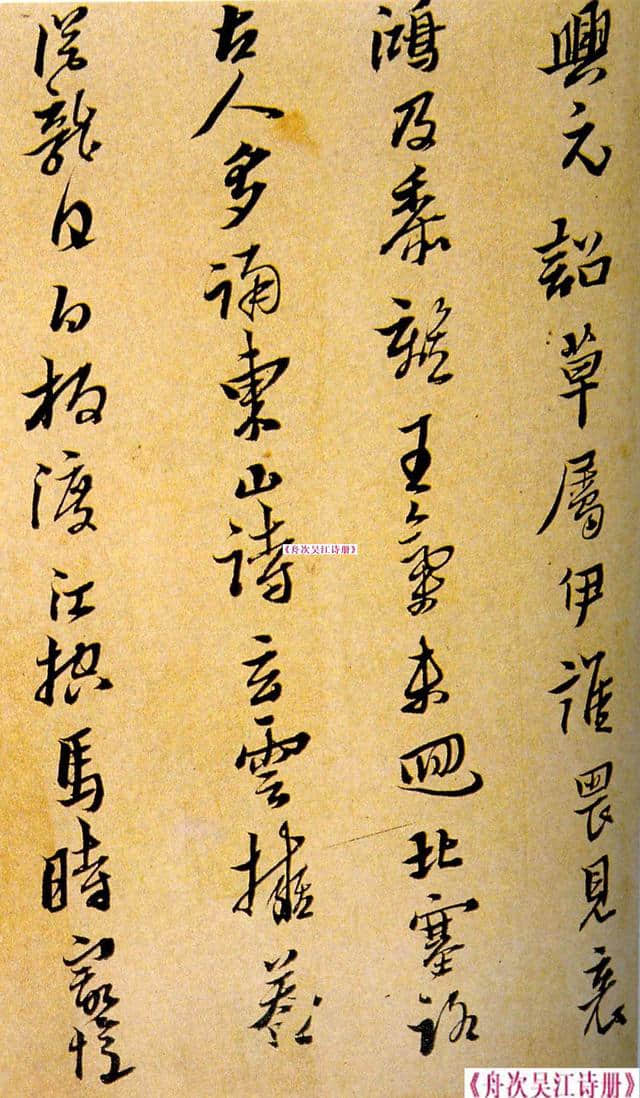 興元詔草屬伊誰畏見哀
鴻及黍離王氣未迴北塞
古人多誦東山詩玄雲擁蓋
從龍日白板渡江控馬時
《舟次吴江诗册》
《舟次吴江诗册》